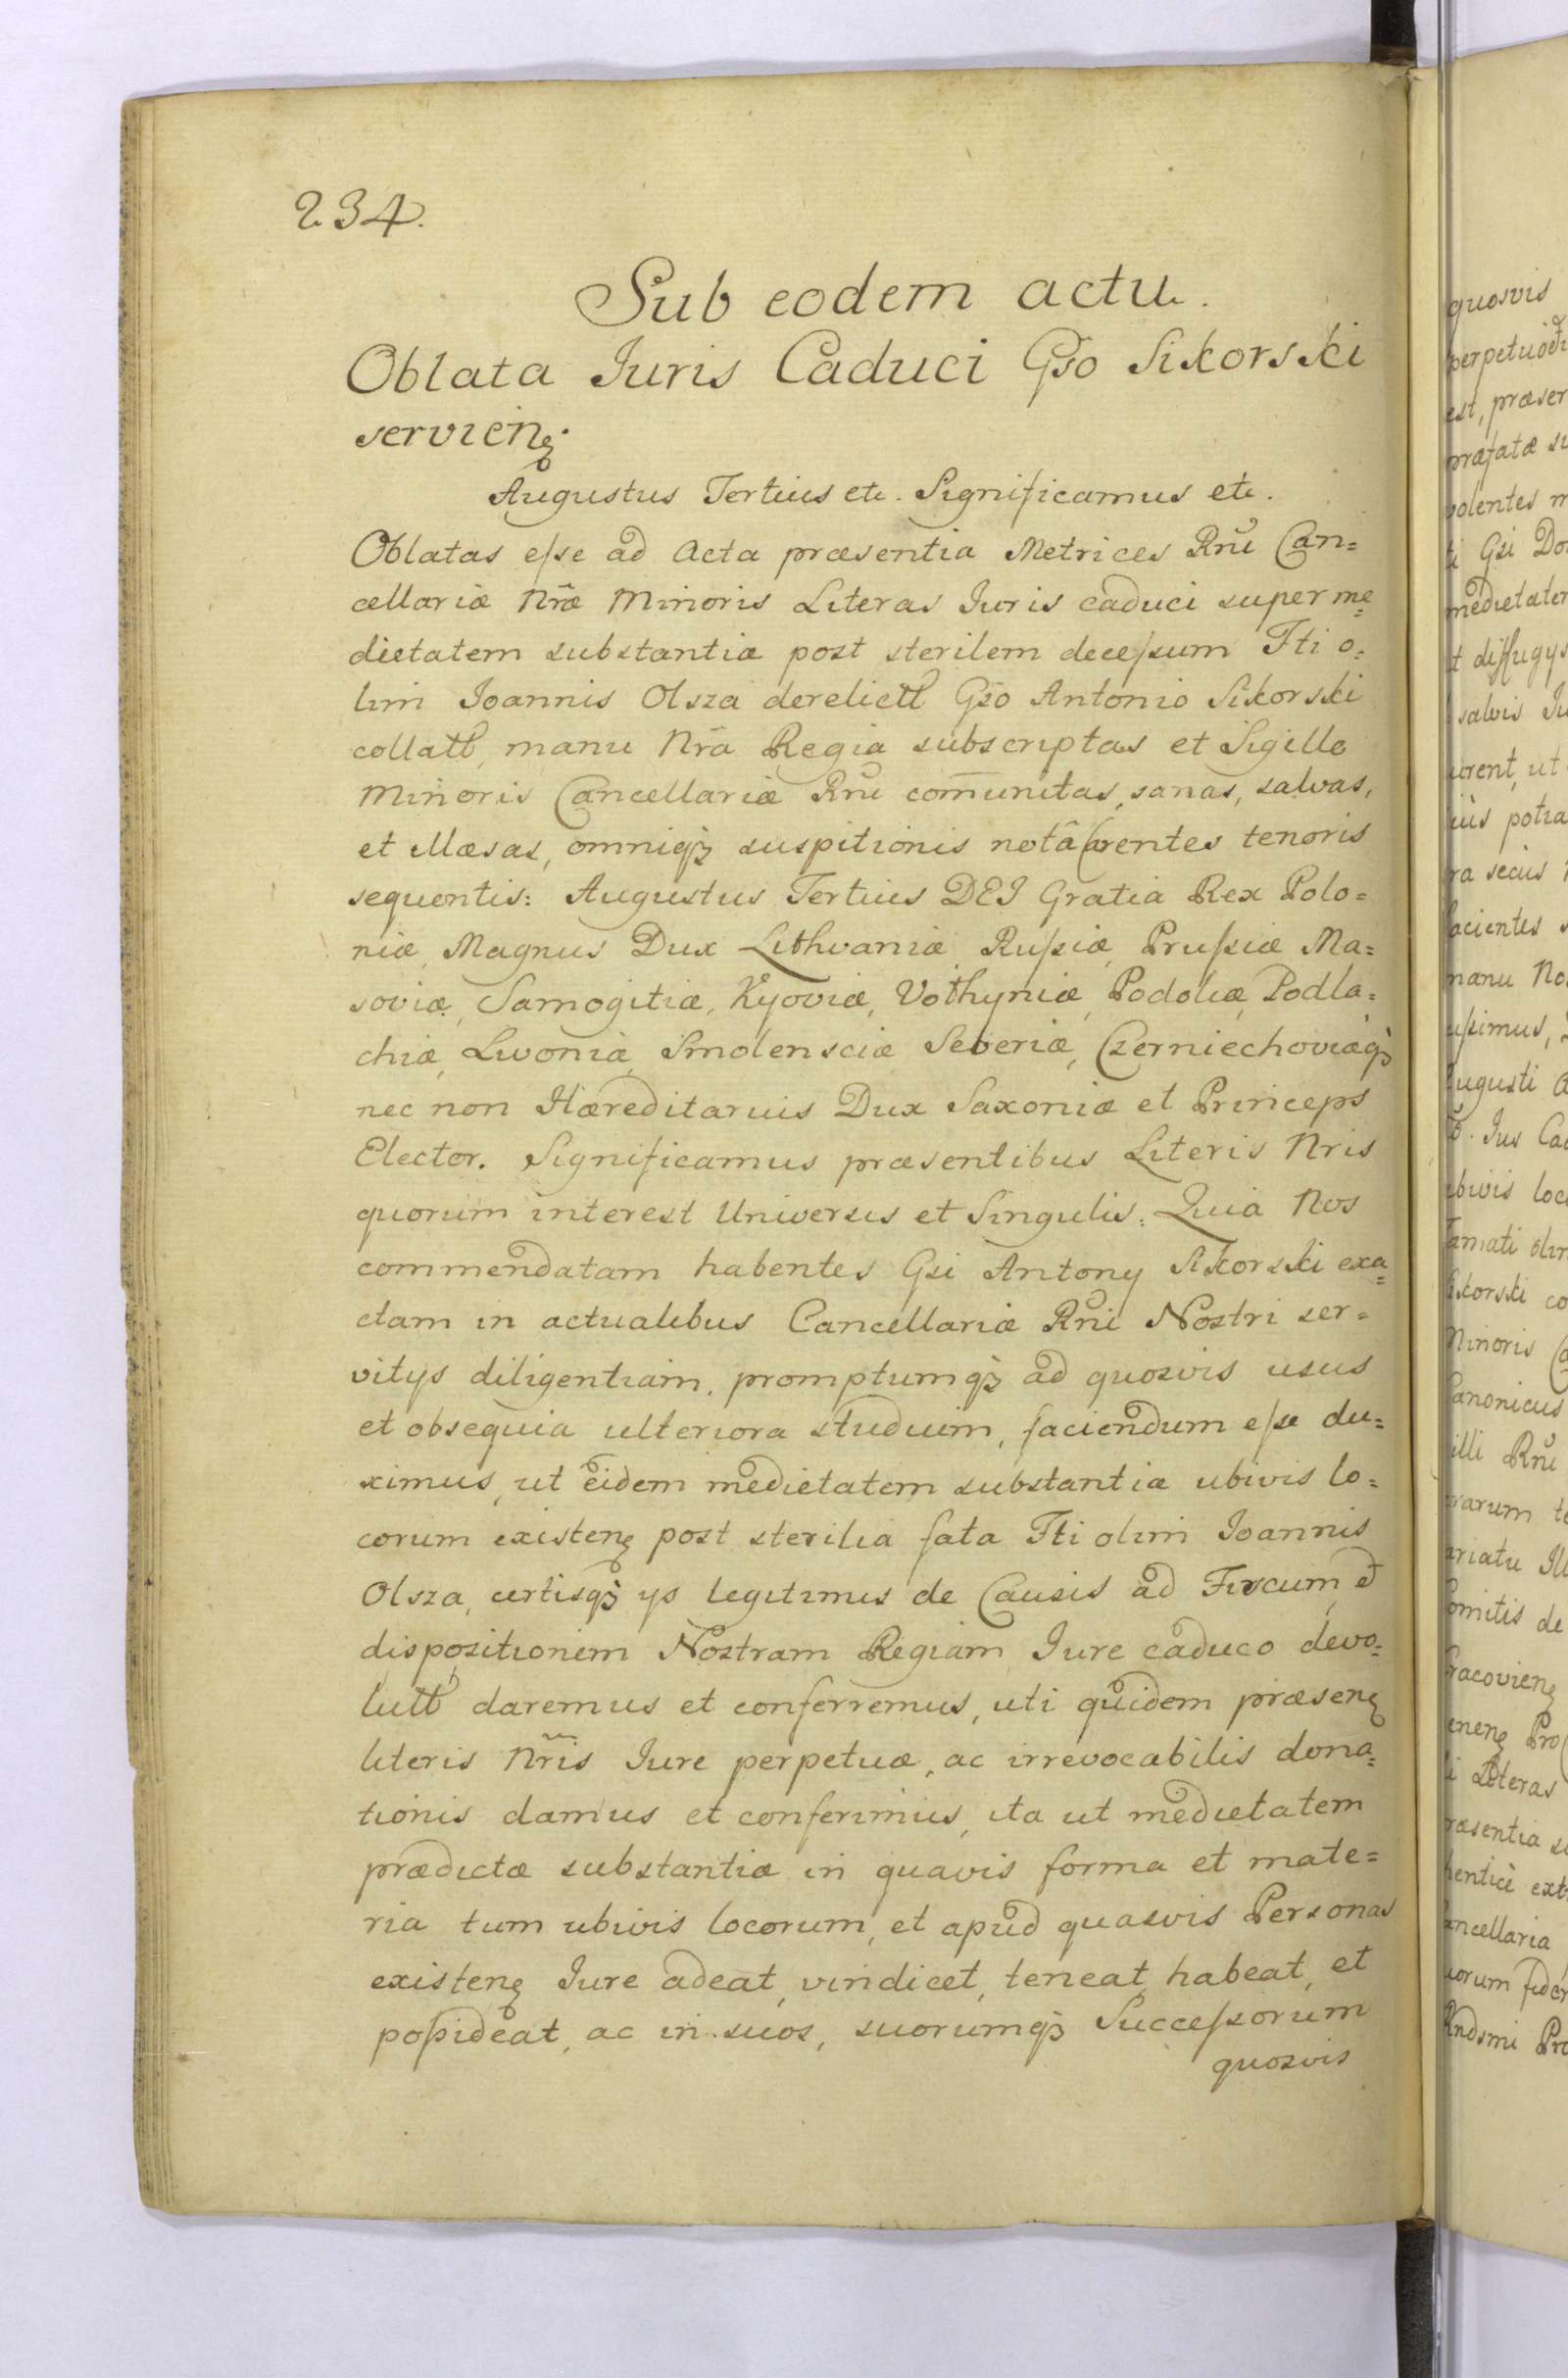 234.
Sub eodem actu.
Oblata Iuris Caduci Gso Sikorski
servien.
Augustus Tertius etc. Significamus etc.
Oblatas esse ad Acta præsentia Metrices Rnĭ Can=
cellariæ Nræ Minoris Literas Iuris caduci super me=
dietatem substantiæ post sterilem decessum Fti o=
lim Joannis Olsza derelictt Gso Antonio Sikorski
collatt, manu Nrã Regia subscriptas et Sigillo
Minoris Cancellariæ Rnĭ com̃unitas, sanas, salvas,
et illæsas, omniqȝ suspitionis notâ Carentes tenoris
sequentis: Augustus Tertius DEI Gratia Rex Polo=
niæ, Magnus Dux Lithvaniæ, Russiæ, Prussiæ Ma=
soviæ, Samogitiæ, Kyoviæ, Volhyniæ, Podoliæ, Podla=
chiæ, Livoniæ, Smolensciæ Severiæ, Czerniechoviæqȝ
nec non Hæreditarius Dux Saxoniæ et Princeps
Elector. Significamus præsentibus Literis Nris
quorum interest Universis et Singulis. Quia Nos
commendatam habentes Gsi Antony Sikorski exa=
ctam in actualibus Cancellariæ Rnĭ Nostri ser=
vitys diligentiam, promptumqȝ ad quosvis usus
et obsequia ulteriora studium, faciendum esse du=
ximus, ut eidem medietatem substantiæ ubivis lo=
corum existen post sterilia fata Fti olim Joannis
Olsza, certisqȝ ys legitimis de Causis ad Fiscum, et
dispositionem Nostram Regiam Iure caduco devo=
lutt daremus et conferremus, uti quidem præsen
literis Nrĩs Iure perpetuæ, ac irrevocabilis dona=
tionis damus et conferimus, ita ut medietatem
prædictæ substantiæ in quavis forma et mate=
ria tum ubivis locorum, et apud quasvis Personas
existen Iure adeat, vindicet, teneat, habeat, et
possideat, ac in suos, suorumqȝ Successorum
quosvis
quosvis
est, præser
præfatæ su
volentes m
ti Gsi Do
medietatem
et diffugys
salvis Iu
ut
potia
ra secus
facientes
manu No
Augusti
Ius Ca
ubivis loc
Sikorski co
Minoris
Canonicus
illi Rnĭ
rarum te
omitis de
Cracovien
Pro
Literas
ræsentia
ext
ancellaria
Pro